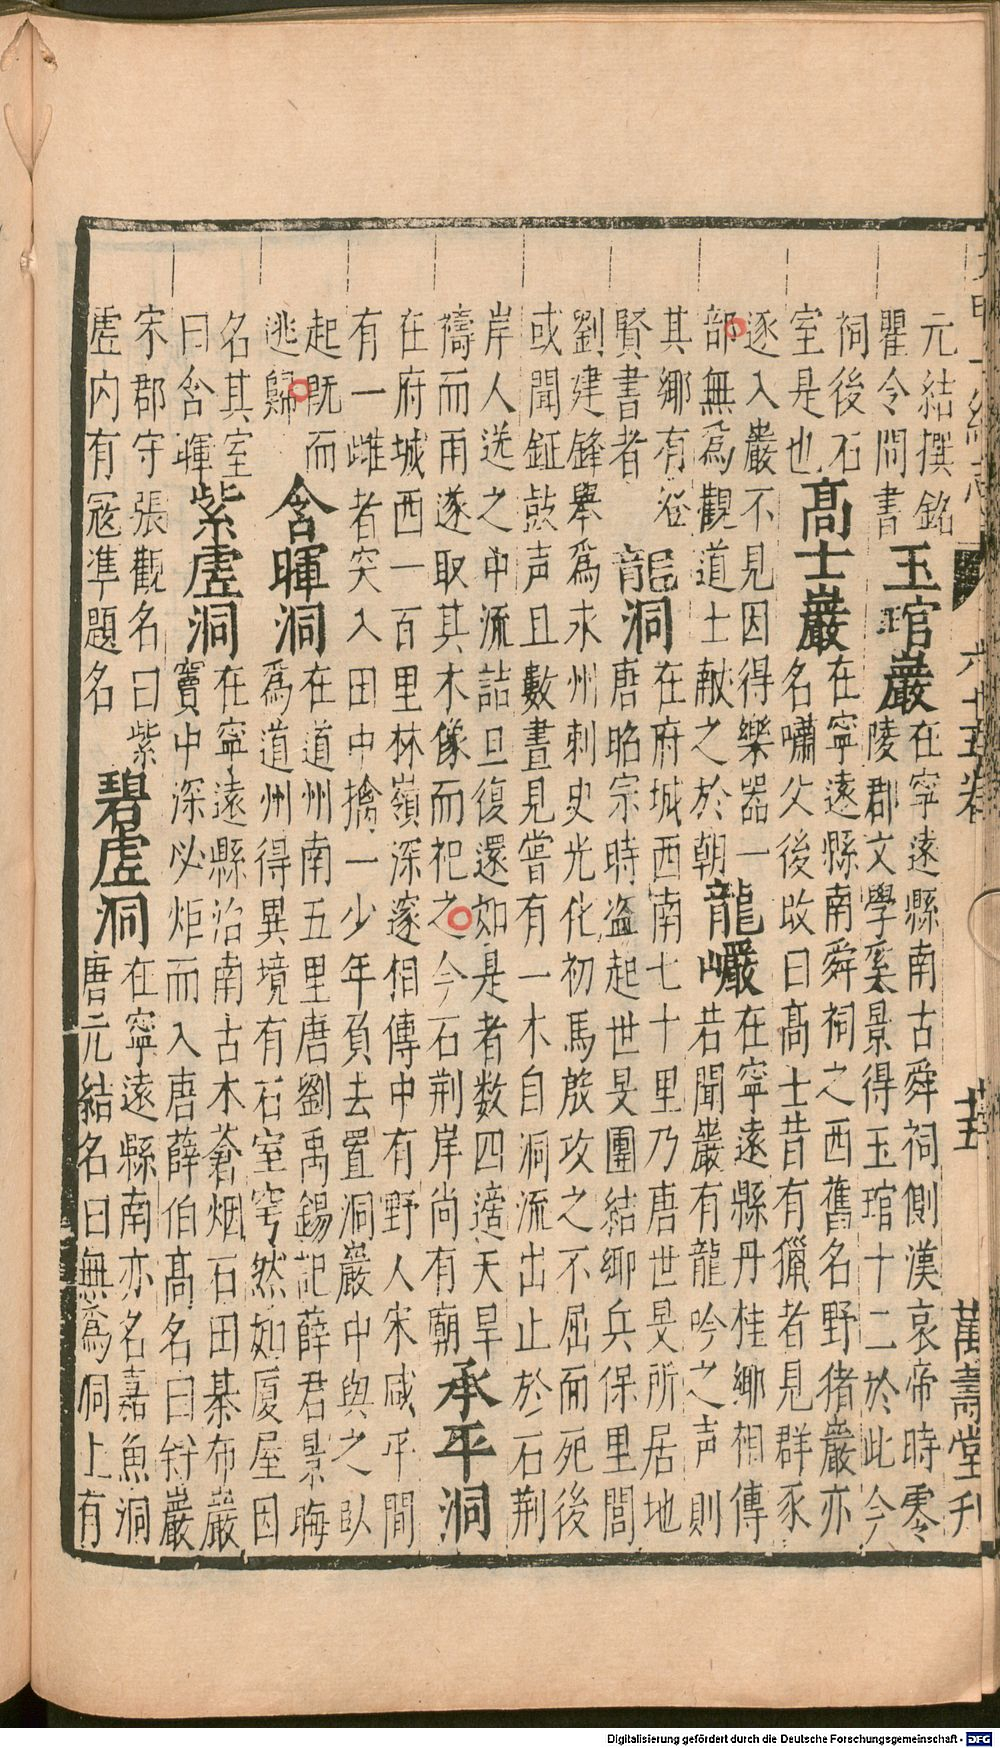 大明一統志 六十五卷 十五 萬壽堂刊
元結撰銘
瞿令問書
玉琯巖
在寧遠縣南古舜祠側漢哀帝時零
陵郡文學奚景得玉琯十二於此今
祠後石
室是也
髙士巖
在寧遠縣南舜祠之西舊名野猪巖亦
名嘯父後改曰髙士昔有獵者見群豕
逐入巖不見因得樂器一
部無為觀道士献之於朝
龍巗
在寧遠縣丹桂鄉相傳
若聞巖有龍吟之声則
其鄉有登
賢書者
龍洞
在府城西南七十里乃唐世旻所居地
唐昭宗時盗起世旻團結鄉兵保里閭
劉建鋒舉為永州刺史光化初馬殷攻之不屈而死後
或聞鉦鼓声且數晝見嘗有一木自洞流出止於石荆
岸人送之中流詰旦復還如是者数四適天旱
禱而雨遂取其木像而祀之今石荆岸尚有廟
承平洞
在府城西一百里林嶺深邃相傳中有野人宋咸平間
有一雌者突入田中擒一少年負去置洞巖中與之臥
起既而
逃歸
含暉洞
在道州南五里唐劉禹錫記薛君景晦
為道州得異境有石室穹然如廈屋因
名其室
曰含暉
紫虛洞
在寧遠縣治南古木蒼烟石田棊布巖
竇中深必炬而入唐薛伯髙名曰斜巖
宋郡守張觀名曰紫
虛内有冦準題名
碧虛洞
在寧遠縣南亦名嘉魚洞
唐元結名曰無為洞上有
Digitalisierung gefördert durch die Deutsche Forschungsgemeinschaft - DFG